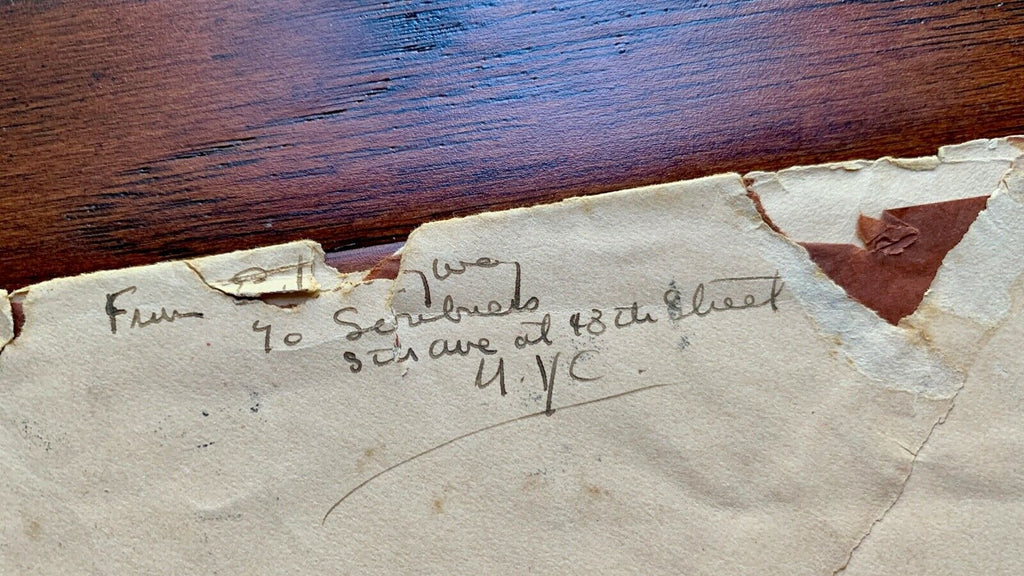 From E. H    gway
% Scribners
5th Ave at 48th Street
N.Y.C.